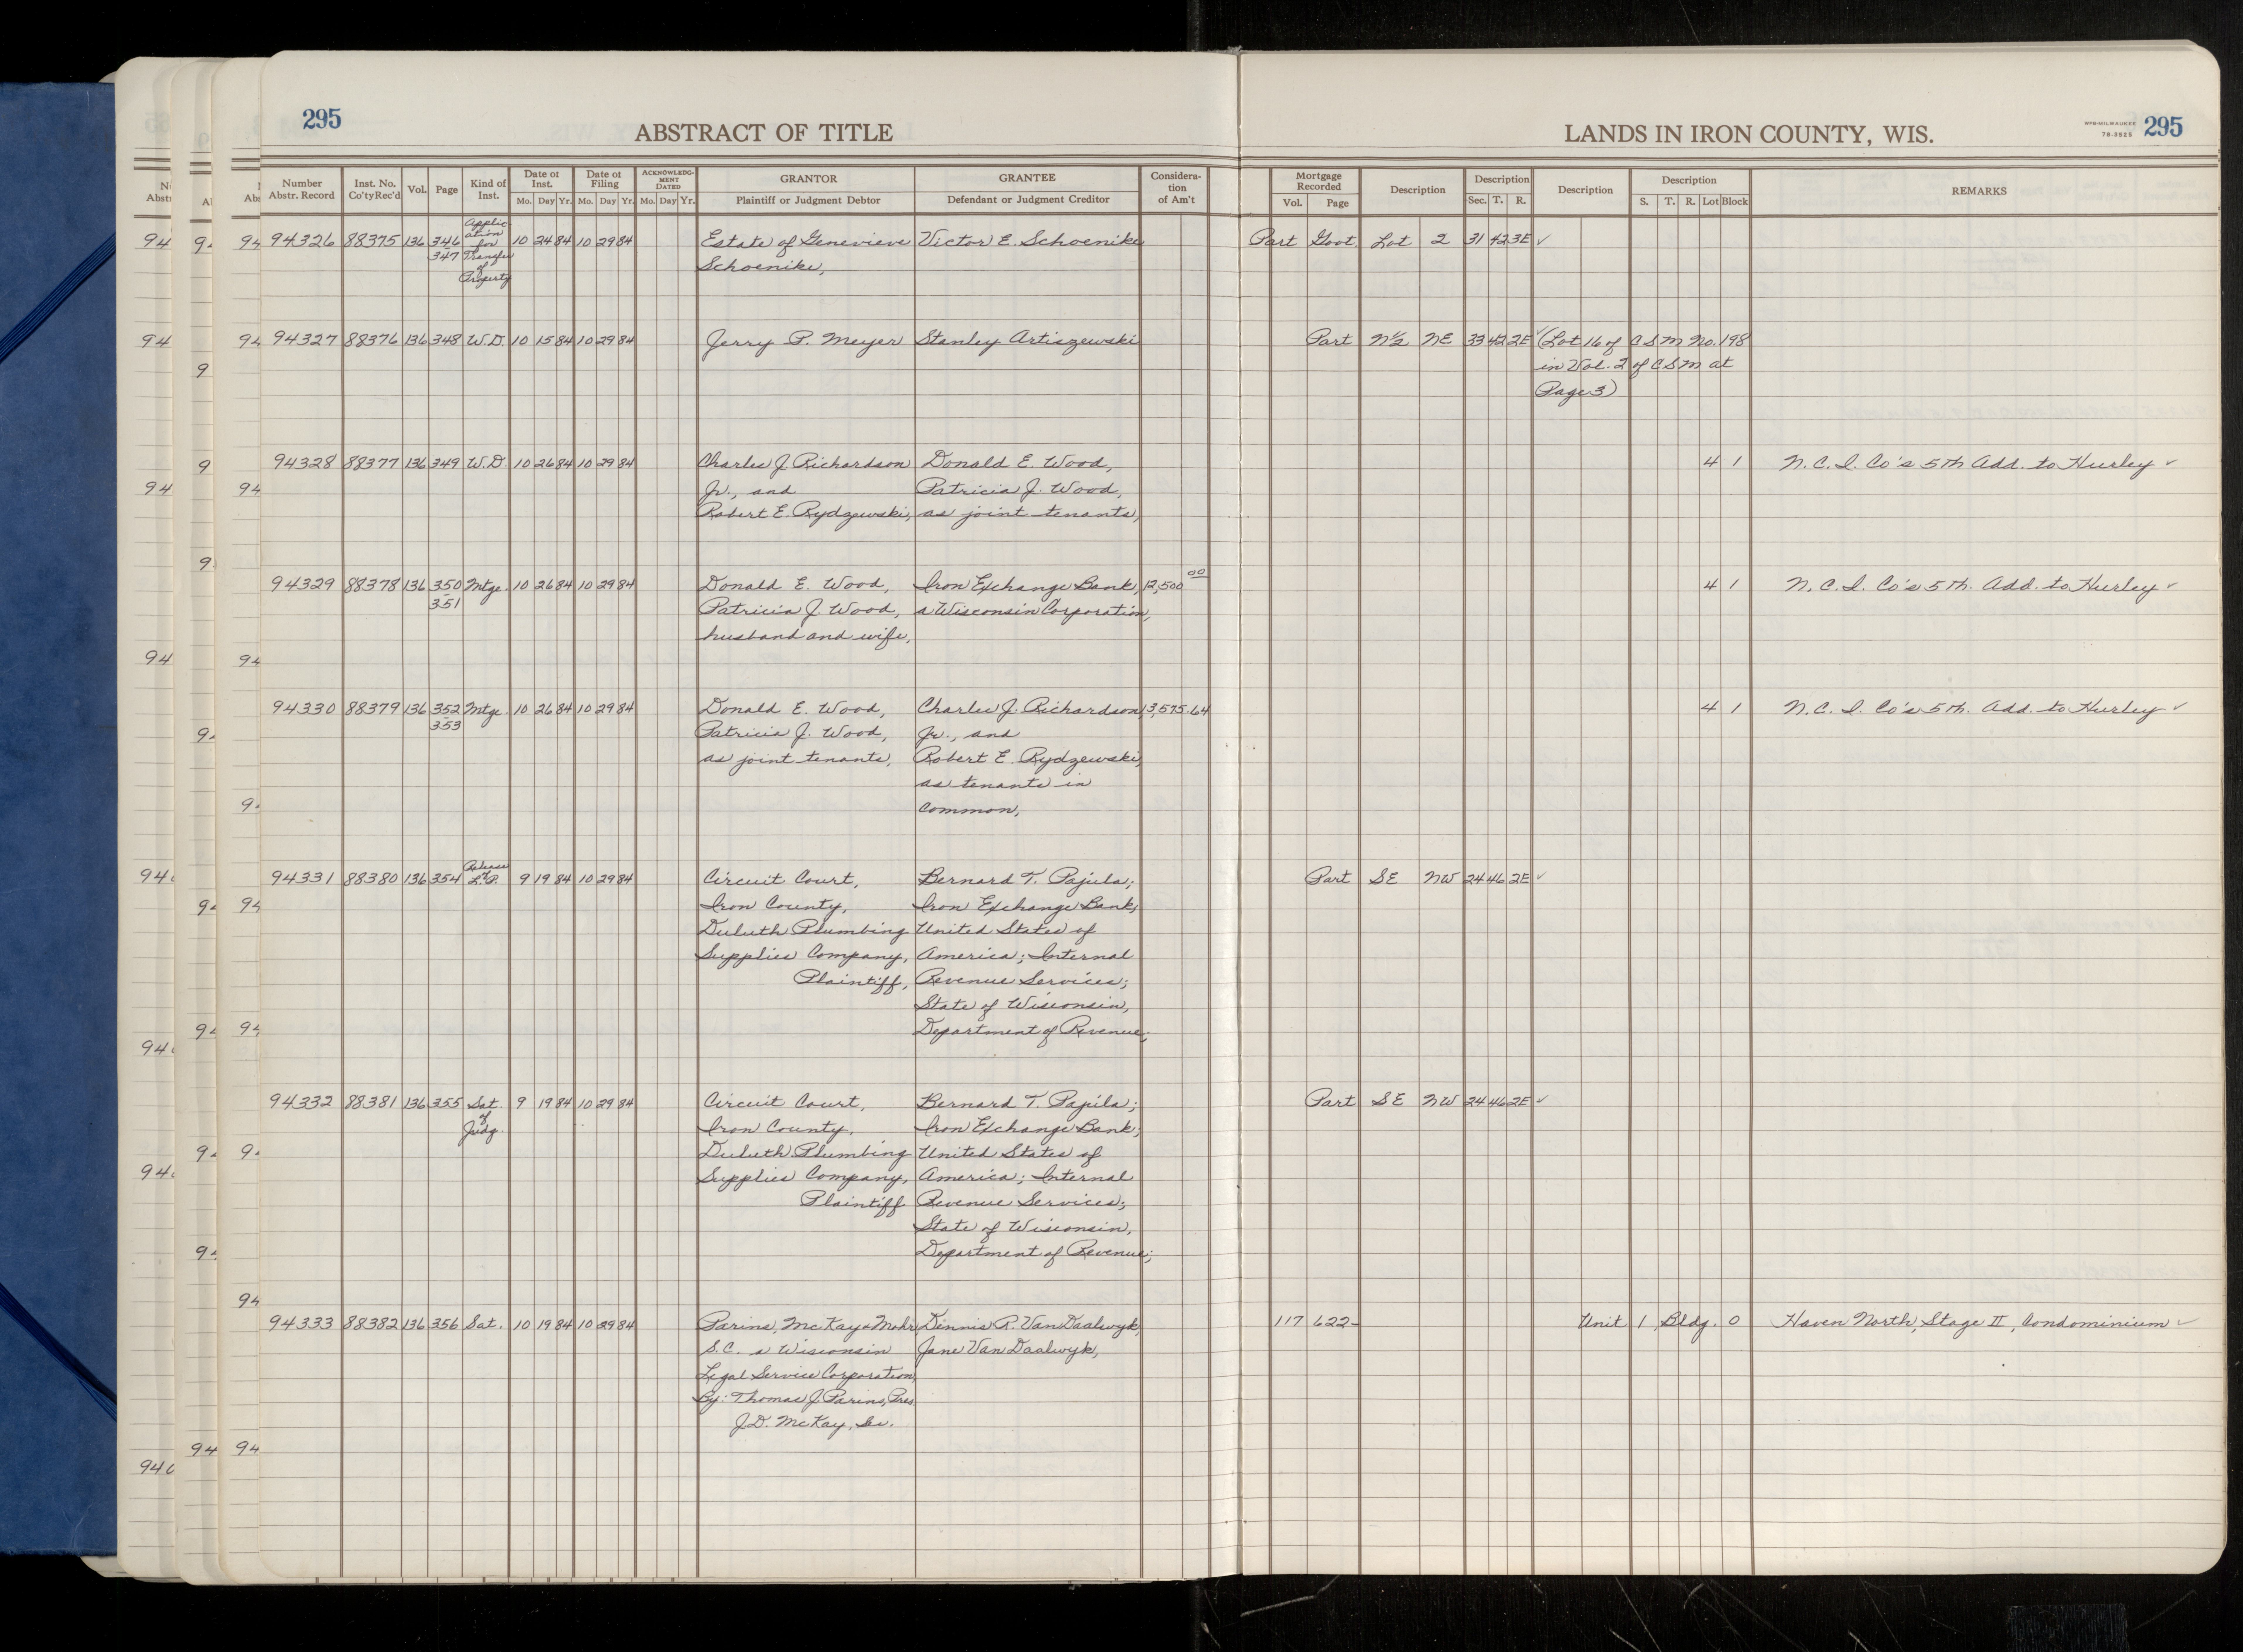 295
ABSTRACT OF TITLE
LANDS IN IRON COUNTY, WIS.
WPB-MILWAUKEE
78-3525
295
Number Abstr. Record
Inst. No. Co'ty Rec'd
Vol.
Page
Kind of Inst.
Date of Inst.
Mo. Day Yr.
Date of Filing
Mo. Day Yr.
ACKNOWLEDG-
MENT
DATED
Mo. Day Yr.
GRANTOR
Plaintiff or Judgment Debtor
GRANTEE
Defendant or Judgment Creditor
Considera-
tion
of Am't
Mortgage Recorded
Vol. Page
Description
Description
Sec. T. R.
Description
Description
S. T. R. Lot Block
REMARKS
94326 88375 136 346 Applic 10 24 84 10 29 84 Estate of Genevieve Victor E. Schoenike Part Govt. Lot 2 31 42 3E ✓
347 ation for Transfer of Property Schoenike,
94327 88376 136 348 W.D. 10 15 84 10 29 84 Jerry P. Meyer Stanley Artiszewski Part N½ NE 33 42 2E ✓ (Lot 16 of C S M No. 198
in Vol. 2 of C S M at
Page 3)
94328 88377 136 349 W.D. 10 26 84 10 29 84 Charles J. Richardson Donald E. Wood, 4 1 N. C. I. Co's 5th Add. to Hurley ✓
Jr., and Patricia J. Wood,
Robert E. Rydzewski, as joint tenants,
94329 88378 136 350 Mtge. 10 26 84 10 29 84 Donald E. Wood, Iron Exchange Bank, 12,500 00 4 1 N. C. I. Co's 5th. Add. to Hurley ✓
351 Patricia J. Wood, a Wisconsin Corporation,
husband and wife,
94330 88379 136 352 Mtge. 10 26 84 10 29 84 Donald E. Wood, Charles J. Richardson, 13,575.64 4 1 N. C. I. Co's 5th. Add. to Hurley ✓
353 Patricia J. Wood, Jr., and
as joint tenants, Robert E. Rydzewski,
as tenants in
common,
94331 88380 136 354 Release of L.P. 9 19 84 10 29 84 Circuit Court, Bernard T. Pajula; Part SE NW 24 46 2E ✓
Iron County, Iron Exchange Bank;
Duluth Plumbing United States of
Supplies Company, America; Internal
Plaintiff, Revenue Services;
State of Wisconsin,
Department of Revenue;
94332 88381 136 355 Sat. 9 19 84 10 29 84 Circuit Court, Bernard T. Pajula; Part SE NW 24 46 2E ✓
of Iron County, Iron Exchange Bank;
Judg. Duluth Plumbing United States of
Supplies Company, America; Internal
Plaintiff Revenue Services;
State of Wisconsin,
Department of Revenue;
94333 88382 136 356 Sat. 10 19 84 10 29 84 Parins, McKay & Mohr Dennis R. Van Daalwyk, 117 622 Unit 1 Bldg. O Haven North, Stage II, Condominium ✓
S.C. a Wisconsin Jane Van Daalwyk,
Legal Service Corporation
By: Thomas J. Parins, Pres
J.D. McKay, Sec.